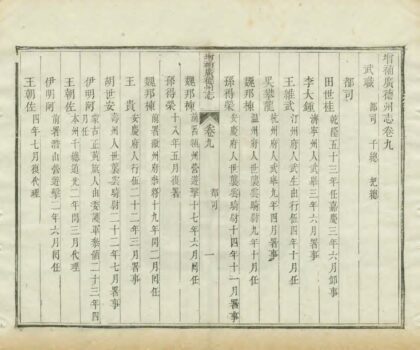 增補廣德州志卷九
武職 都司 千總 把總
都司
田世桂 乾隆五十三年任嘉慶三年六月卸事
李大鍾 濟寧州人武舉三年六月署事
王維武 江州府人武生由行伍四年十月任
吳攀龍 杭州府人武舉九年四月署事
魏邦棟 溫州府人世襲雲騎尉九年十月任
孫得榮 安慶府人世襲雲騎尉十四年十一月署事
增補廣德州志
卷九
都司
一
魏邦棟 前署潁州營遊擊十七年六月回任
孫得榮 十八年五月復署
魏邦棟 前署徽州府參將十九年閏二月回任
王貴 安慶府人行伍二十二年三月署事
胡世安 壽州人世襲雲騎尉二十二年七月署事
伊明阿 蒙古正黃旗人由委護軍參領二十三年四月任
王朝佐 本州千總道光二年閏三月代理
伊明阿 前署潛山營遊擊二年六月回任
王朝佐 四年七月復代理